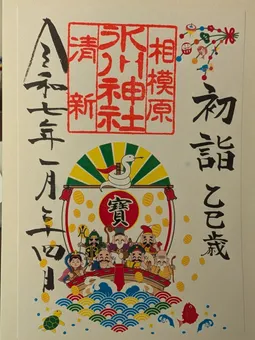 初詣
乙巳歳
相模原
氷川神社
清新
令和七年一月二十四日
寶